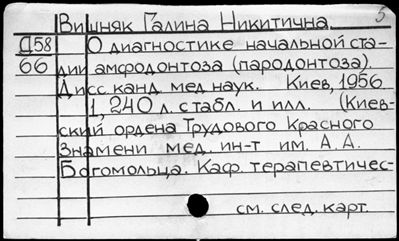 5
Вишняк Галина Никитична.
Д58 О диагностике начальной ста-
66 дии амфодонтоза (пародонтоза).
Дисс. канд. мед. наук. Киев, 1956
1, 240 л. с табл. и илл. (Киев-
ский ордена Трудового Красного
Знамени мед. ин-т им. А. А.
Богомольца. Каф. терапевтичес-
см. след. карт.